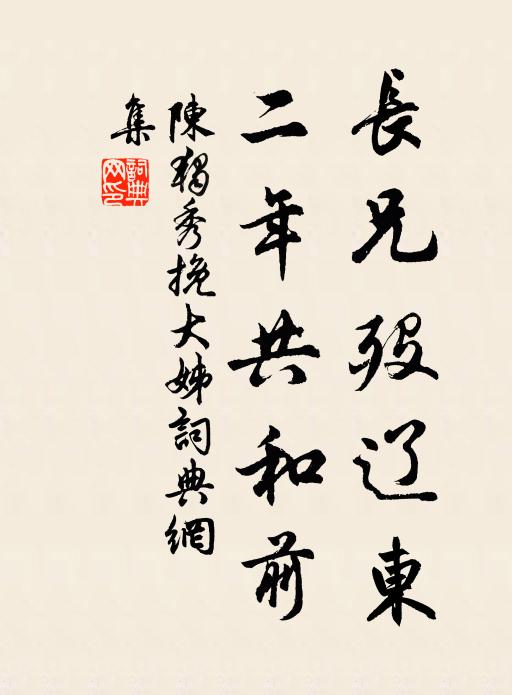 長兄殁辽東
二年共和前
陳獨秀挽大姊詞典網
集
詞典
网印